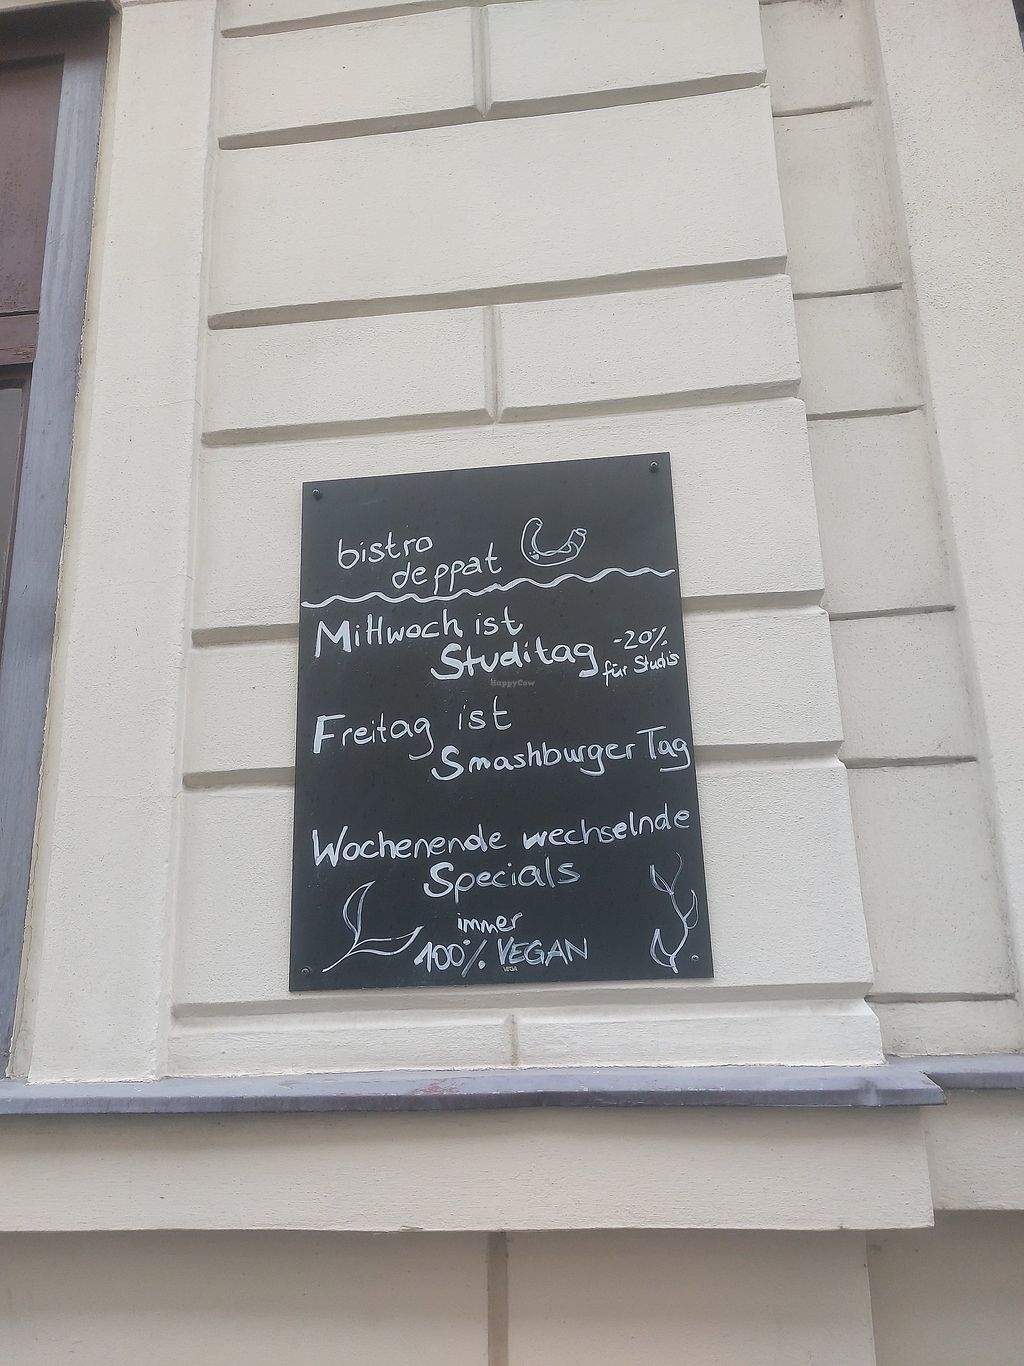 bistro
deppat
Mittwoch ist
Studitag -20%
für Studis
HappyCow
Freitag ist
Smashburger Tag
Wochenende wechselnde
Specials
immer
100% VEGAN
VEGA